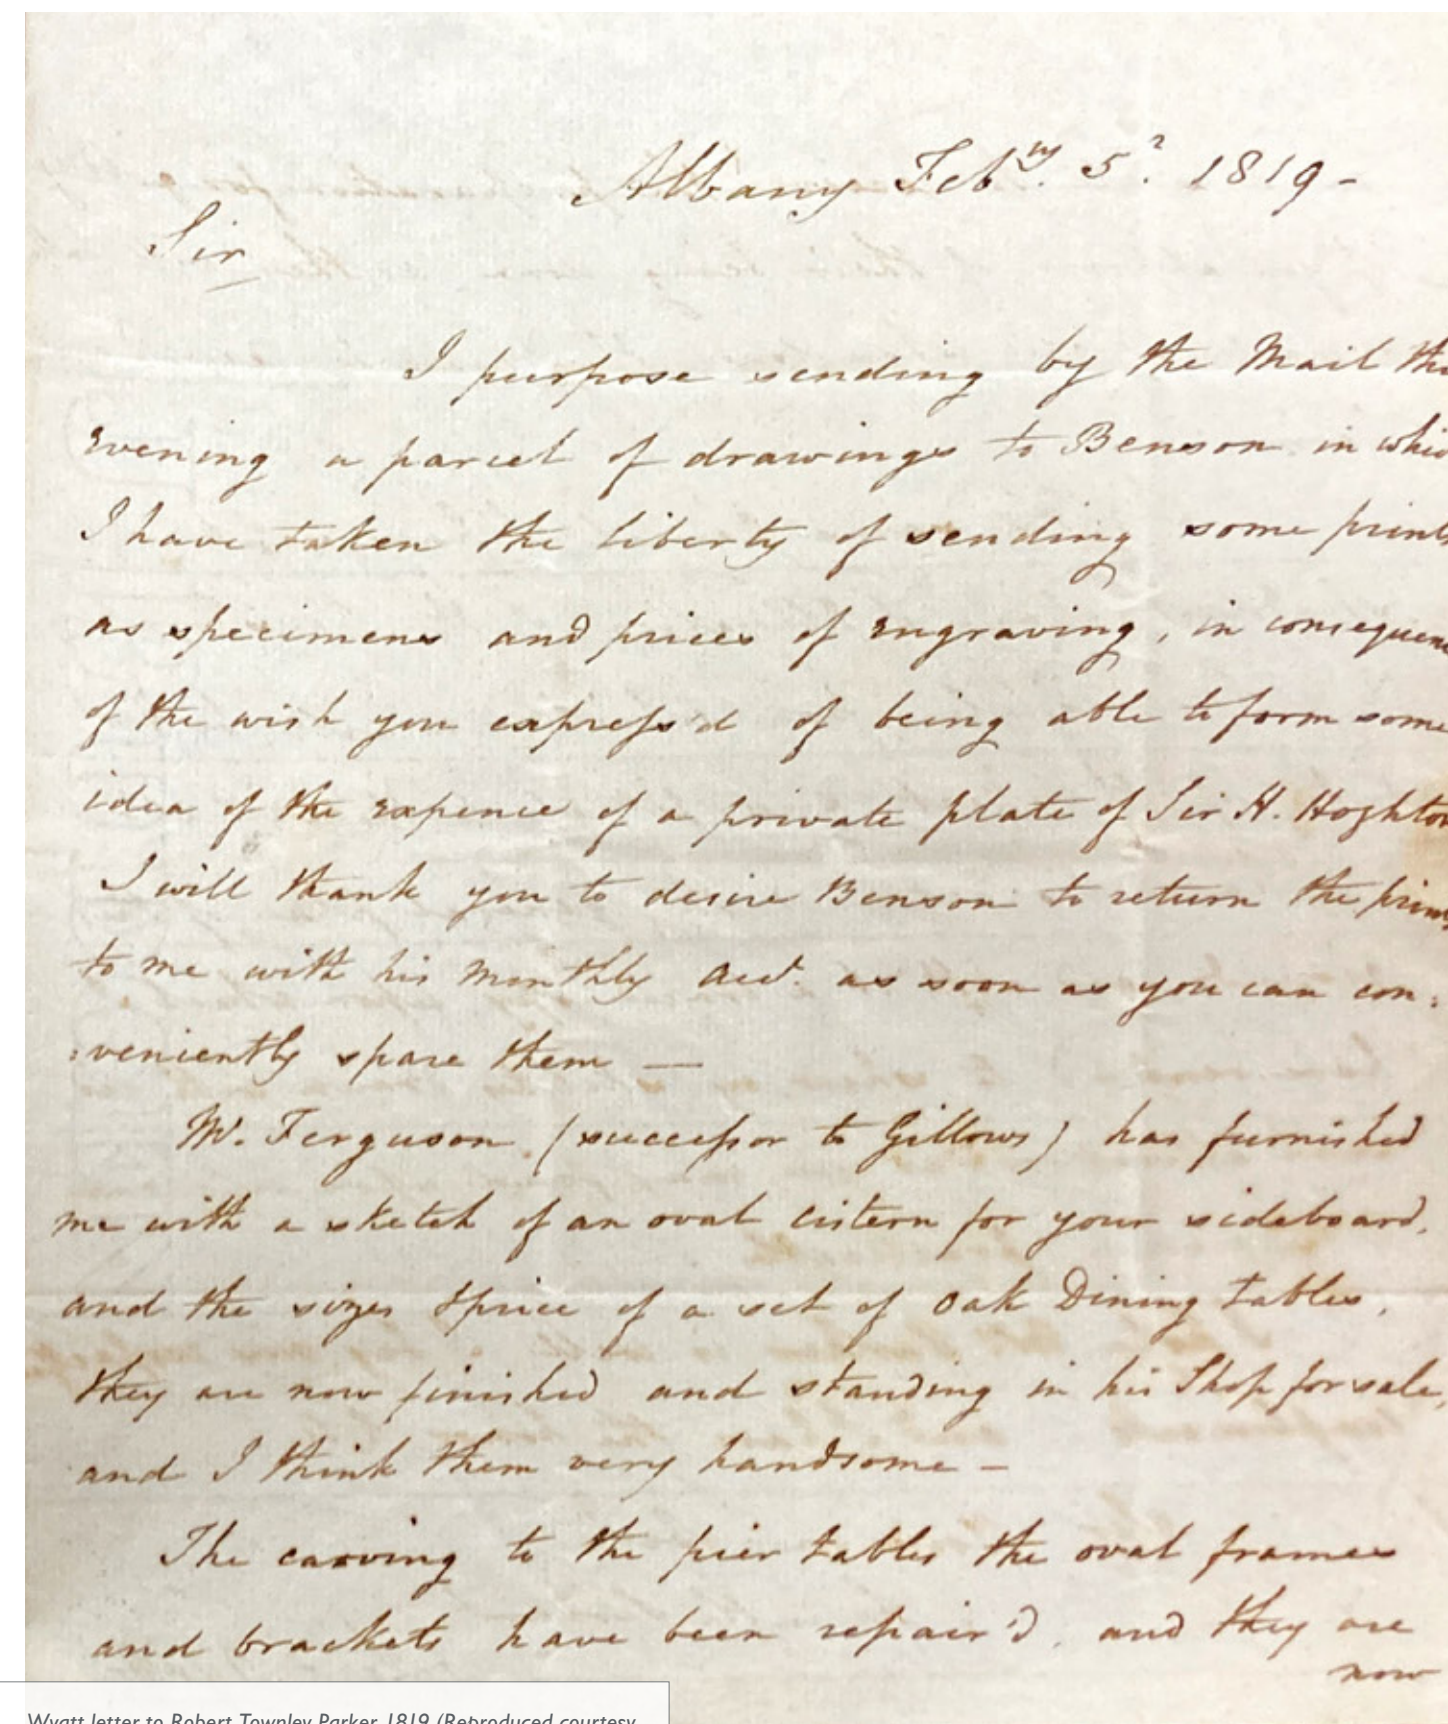 Albany Feb^ry. 5^th. 1819 -
Sir
I purpose sending by the Mail thi
evening a parcel of drawings to Benson in whic
I have taken the liberty of sending some prints
as specimens and prices of engraving, in consequenc
of the wish you express'd of being able to form some
idea of the expence of a private plate of Sir H. Hoghton
I will thank you to desire Benson to return the prints
to me with his monthly acct. as soon as you can con:
:veniently spare them —
Mr. Ferguson (successor to Gillows) has furnished
me with a sketch of an oval cistern for your sideboard,
and the sizes & price of a set of Oak Dining tables,
they are now finished and standing in his Shop for sale,
and I think them very handsome -
The carving to the pier tables the oval frames
and brackets have been repair'd, and they are
now
Wyatt letter to Robert Townley Parker, 1819 (Reproduced courtesy